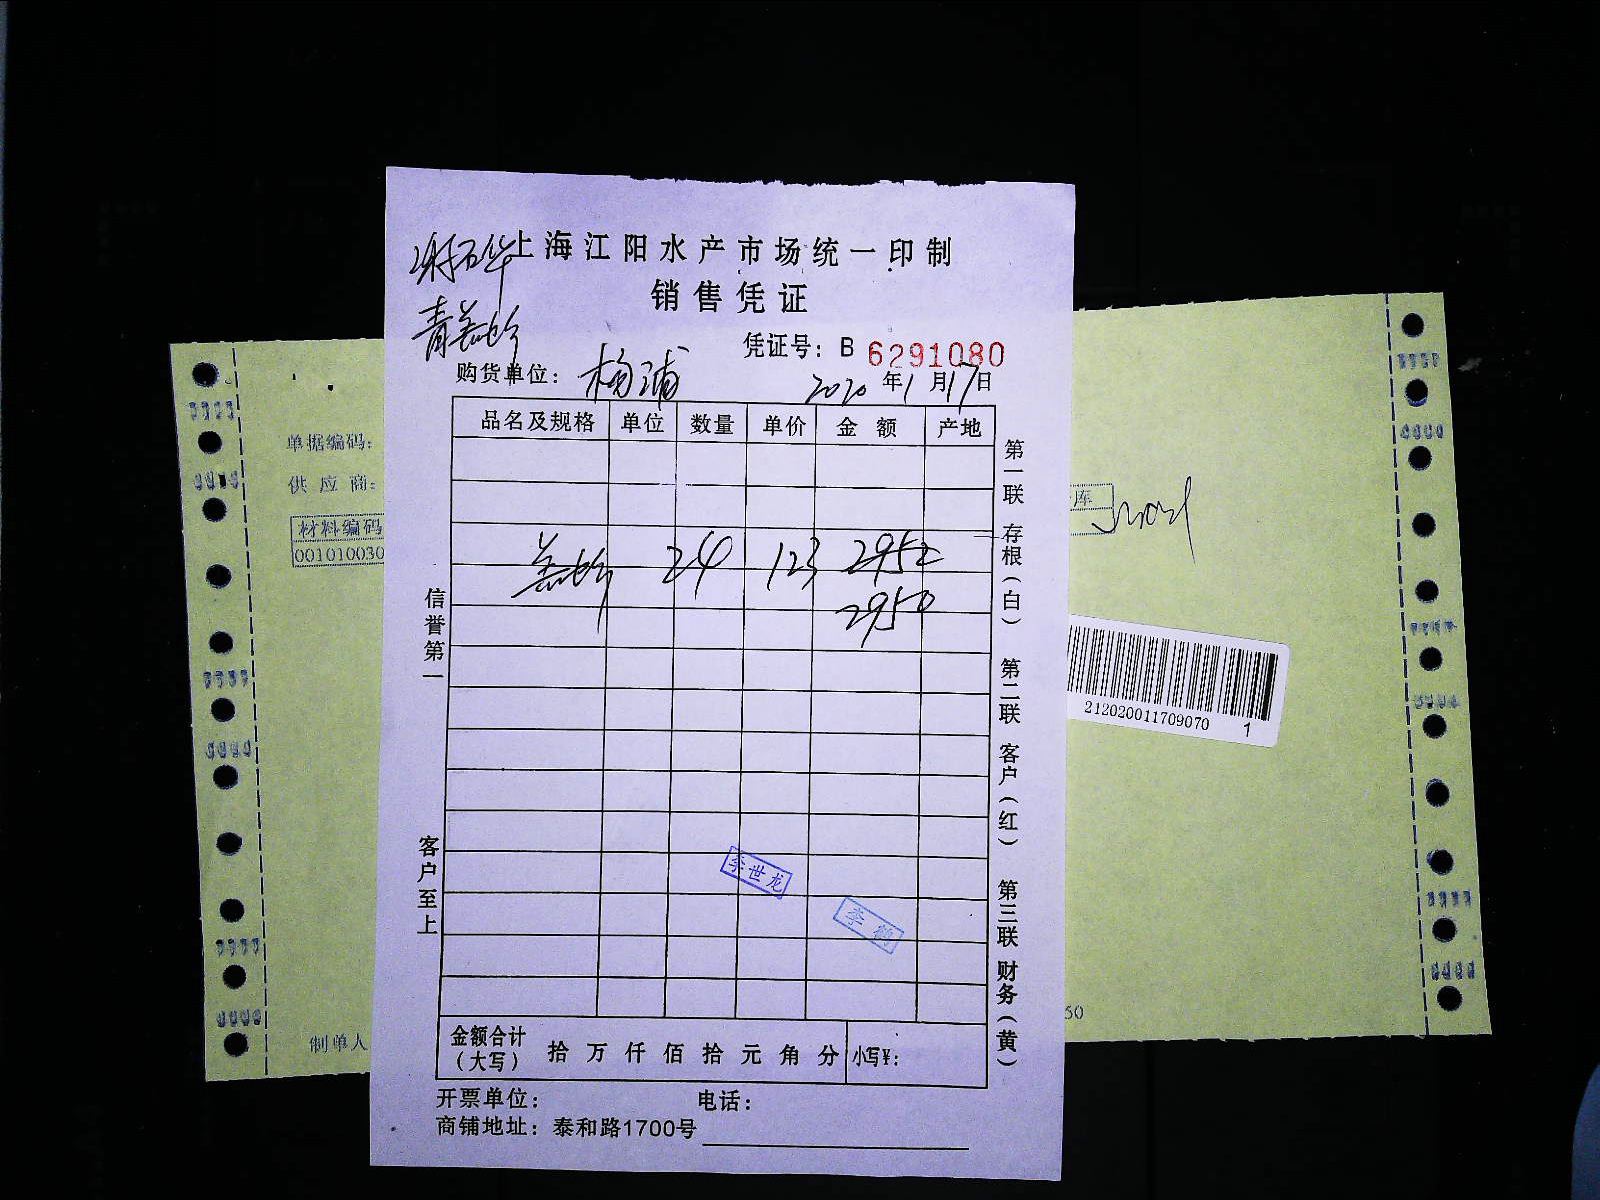 上海江阳水产市场统一印制
销售凭证
凭证号：B 6291080
购货单位：杨浦
2020年1月17日
品名及规格 单位 数量 单价 金 额 产地
24 123 2952
2950
信誉第一
客户至上
第一联 存根（白） 第二联 客户（红） 第三联 财务（黄）
李世龙
李鹤
金额合计（大写） 拾 万 仟 佰 拾 元 角 分 小写¥：
开票单位： 电话：
商铺地址：泰和路1700号
单据编码：
供 应 商：
材料编码
001010030
制单人
库
212020011709070 1
50